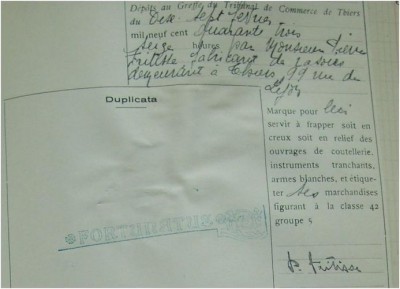 Dépôts au Greffe du Tribunal de Commerce de Thiers
du Dix-sept février
mil neuf cent quarante trois
seize heures par Monsieur Pierre
fabricant de
demeurant à Thiers 99 rue de
Lyon
Duplicata
Marque pour
servir à frapper soit en
creux soit en relief des
ouvrages de coutellerie,
instruments tranchants,
armes blanches, et étique-
ter ses marchandises
figurant à la classe 42
groupe 5
FORTUNATUS
P.